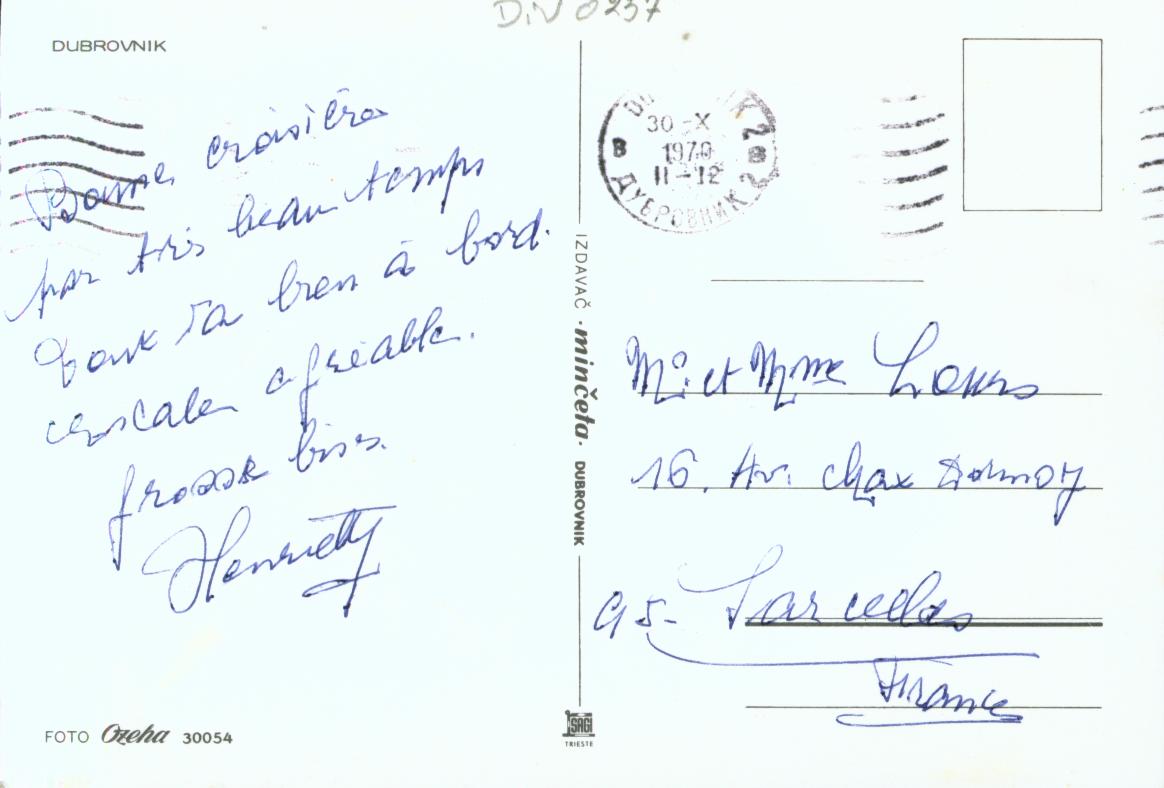 DIV 0237
DUBROVNIK
Bonne croisière
par très beau temps
Tout va bien à bord.
escale agréable.
grosse bises.
Henriette
30-X
1970
11-12
В 2 В 2
ДУБРОВНИК
IZDAVAČ · minčeta · DUBROVNIK
Mr et Mme Louis
16. Av. Max Dormoy
95- Sarcelles
France
FOTO Ozeha 30054
SAGI
TRIESTE